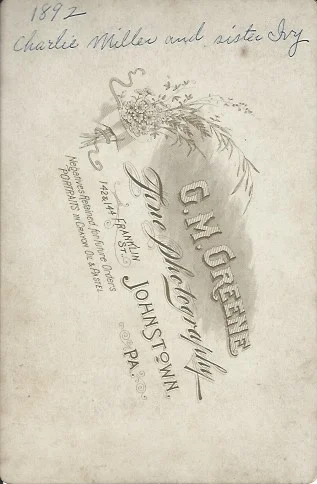 1892
Charlie Miller and sister Ivy
G. M. GREENE
Fine Photography
142 & 144 FRANKLIN ST.
JOHNSTOWN, PA.
Negatives Retained for future Orders
PORTRAITS IN CRAYON OIL & PASTEL